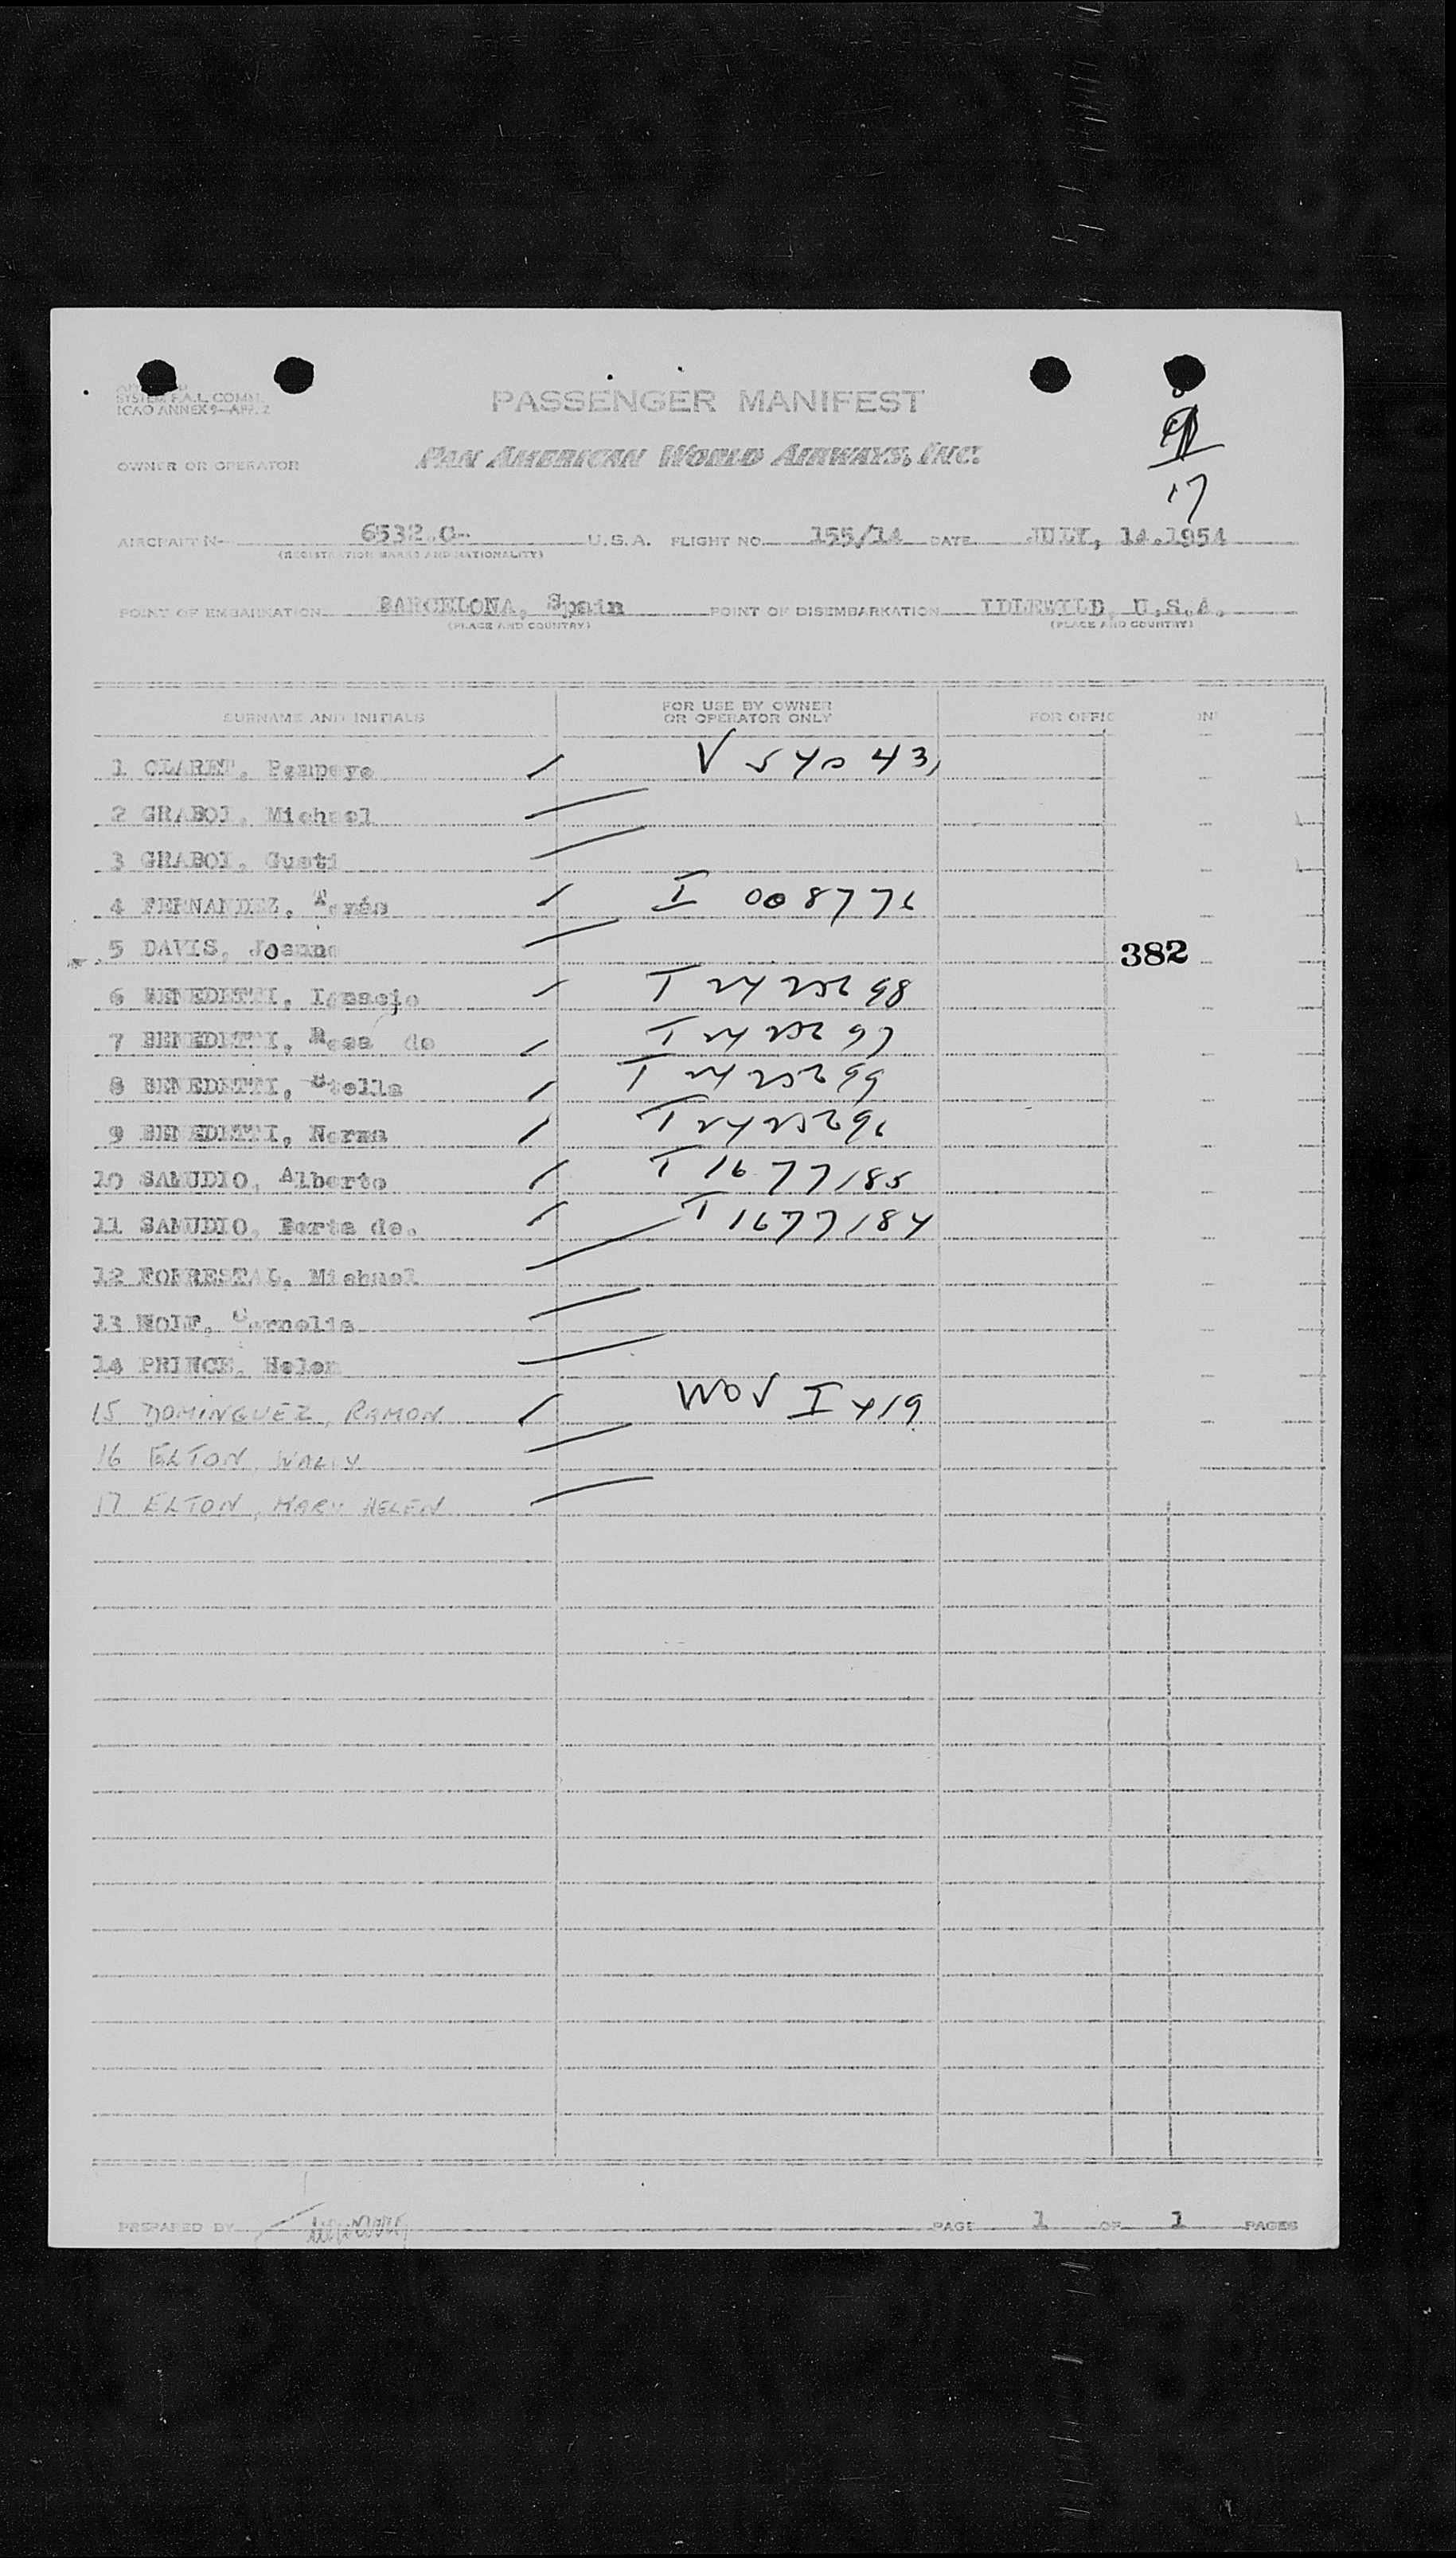 SYSTEM F.A.L. COMM.
ICAO ANNEX 9-APP. 2
PASSENGER MANIFEST
OWNER OR OPERATOR PAN AMERICAN WORLD AIRWAYS, INC.
17
AIRCRAFT N- 6532 C- U.S.A. FLIGHT NO. 155/14 DATE JULY, 14.1954
(REGISTRATION MARKS AND NATIONALITY)
POINT OF EMBARKATION BARCELONA, Spain POINT OF DISEMBARKATION IDLEWILD, U.S.A.
(PLACE AND COUNTRY) (PLACE AND COUNTRY)
SURNAME AND INITIALS FOR USE BY OWNER OR OPERATOR ONLY FOR OFFIC
1 CLARET, Pompeyo V 54043
2 GRABOI, Michael
3 GRABOI, Gusti
4 FERNANDEZ, I 008776
5 DAVIS, Joanne 382
6 BENEDETTI, Ignacio
7 BENEDETTI, Rosa de
8 BENEDETTI, Stella
9 BENEDETTI, Norma
10 SAMUDIO, Alberto T 1677185
11 SAMUDIO, Berta de. T 1677184
12 FORRESTAL, Michael
13 Cornelia
14 PRINCE, Helen
15 DOMINGUEZ, RAMON
16 ELTON, WALLY
17 ELTON, MARY HELEN
PREPARED BY PAGE 1 OF 1 PAGES